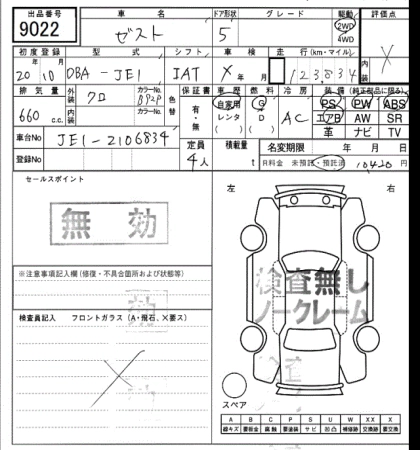 出品番号 9022
車名 ゼスト
ドア形状 5
グレード
駆動 2WD 4WD
評価点 X
初度登録 20年 10月
型式 DBA-JE1
シフト IAT
車検 X 年 月
走行(km・マイル) 123,834
排気量 660 c.c.
外装 クロ
内装
カラーNo. B92P
カラーNo.
色替
保証書 有・無
車歴 自家用 レンタ ( )
燃料 G D ( )
冷房 AC
装備(純正部品に限る)
PS PW ABS
エアB AW SR
革 ナビ TV
車台No JE1-2106834
登録No
定員 4人
積載量 t
名変期限 年 月 日
R料金 未預託・預託済 10420 円
セールスポイント
無効
※注意事項記入欄(修復・不具合箇所および状態等)
検査員記入 フロントガラス(A・飛石、X要ス)
X
左 右
検査無し
ノークレーム
スペア
A B C P S U W X XX
線キズ 要板金 腐触 要塗装 サビ 凹凸 補修跡 要交換